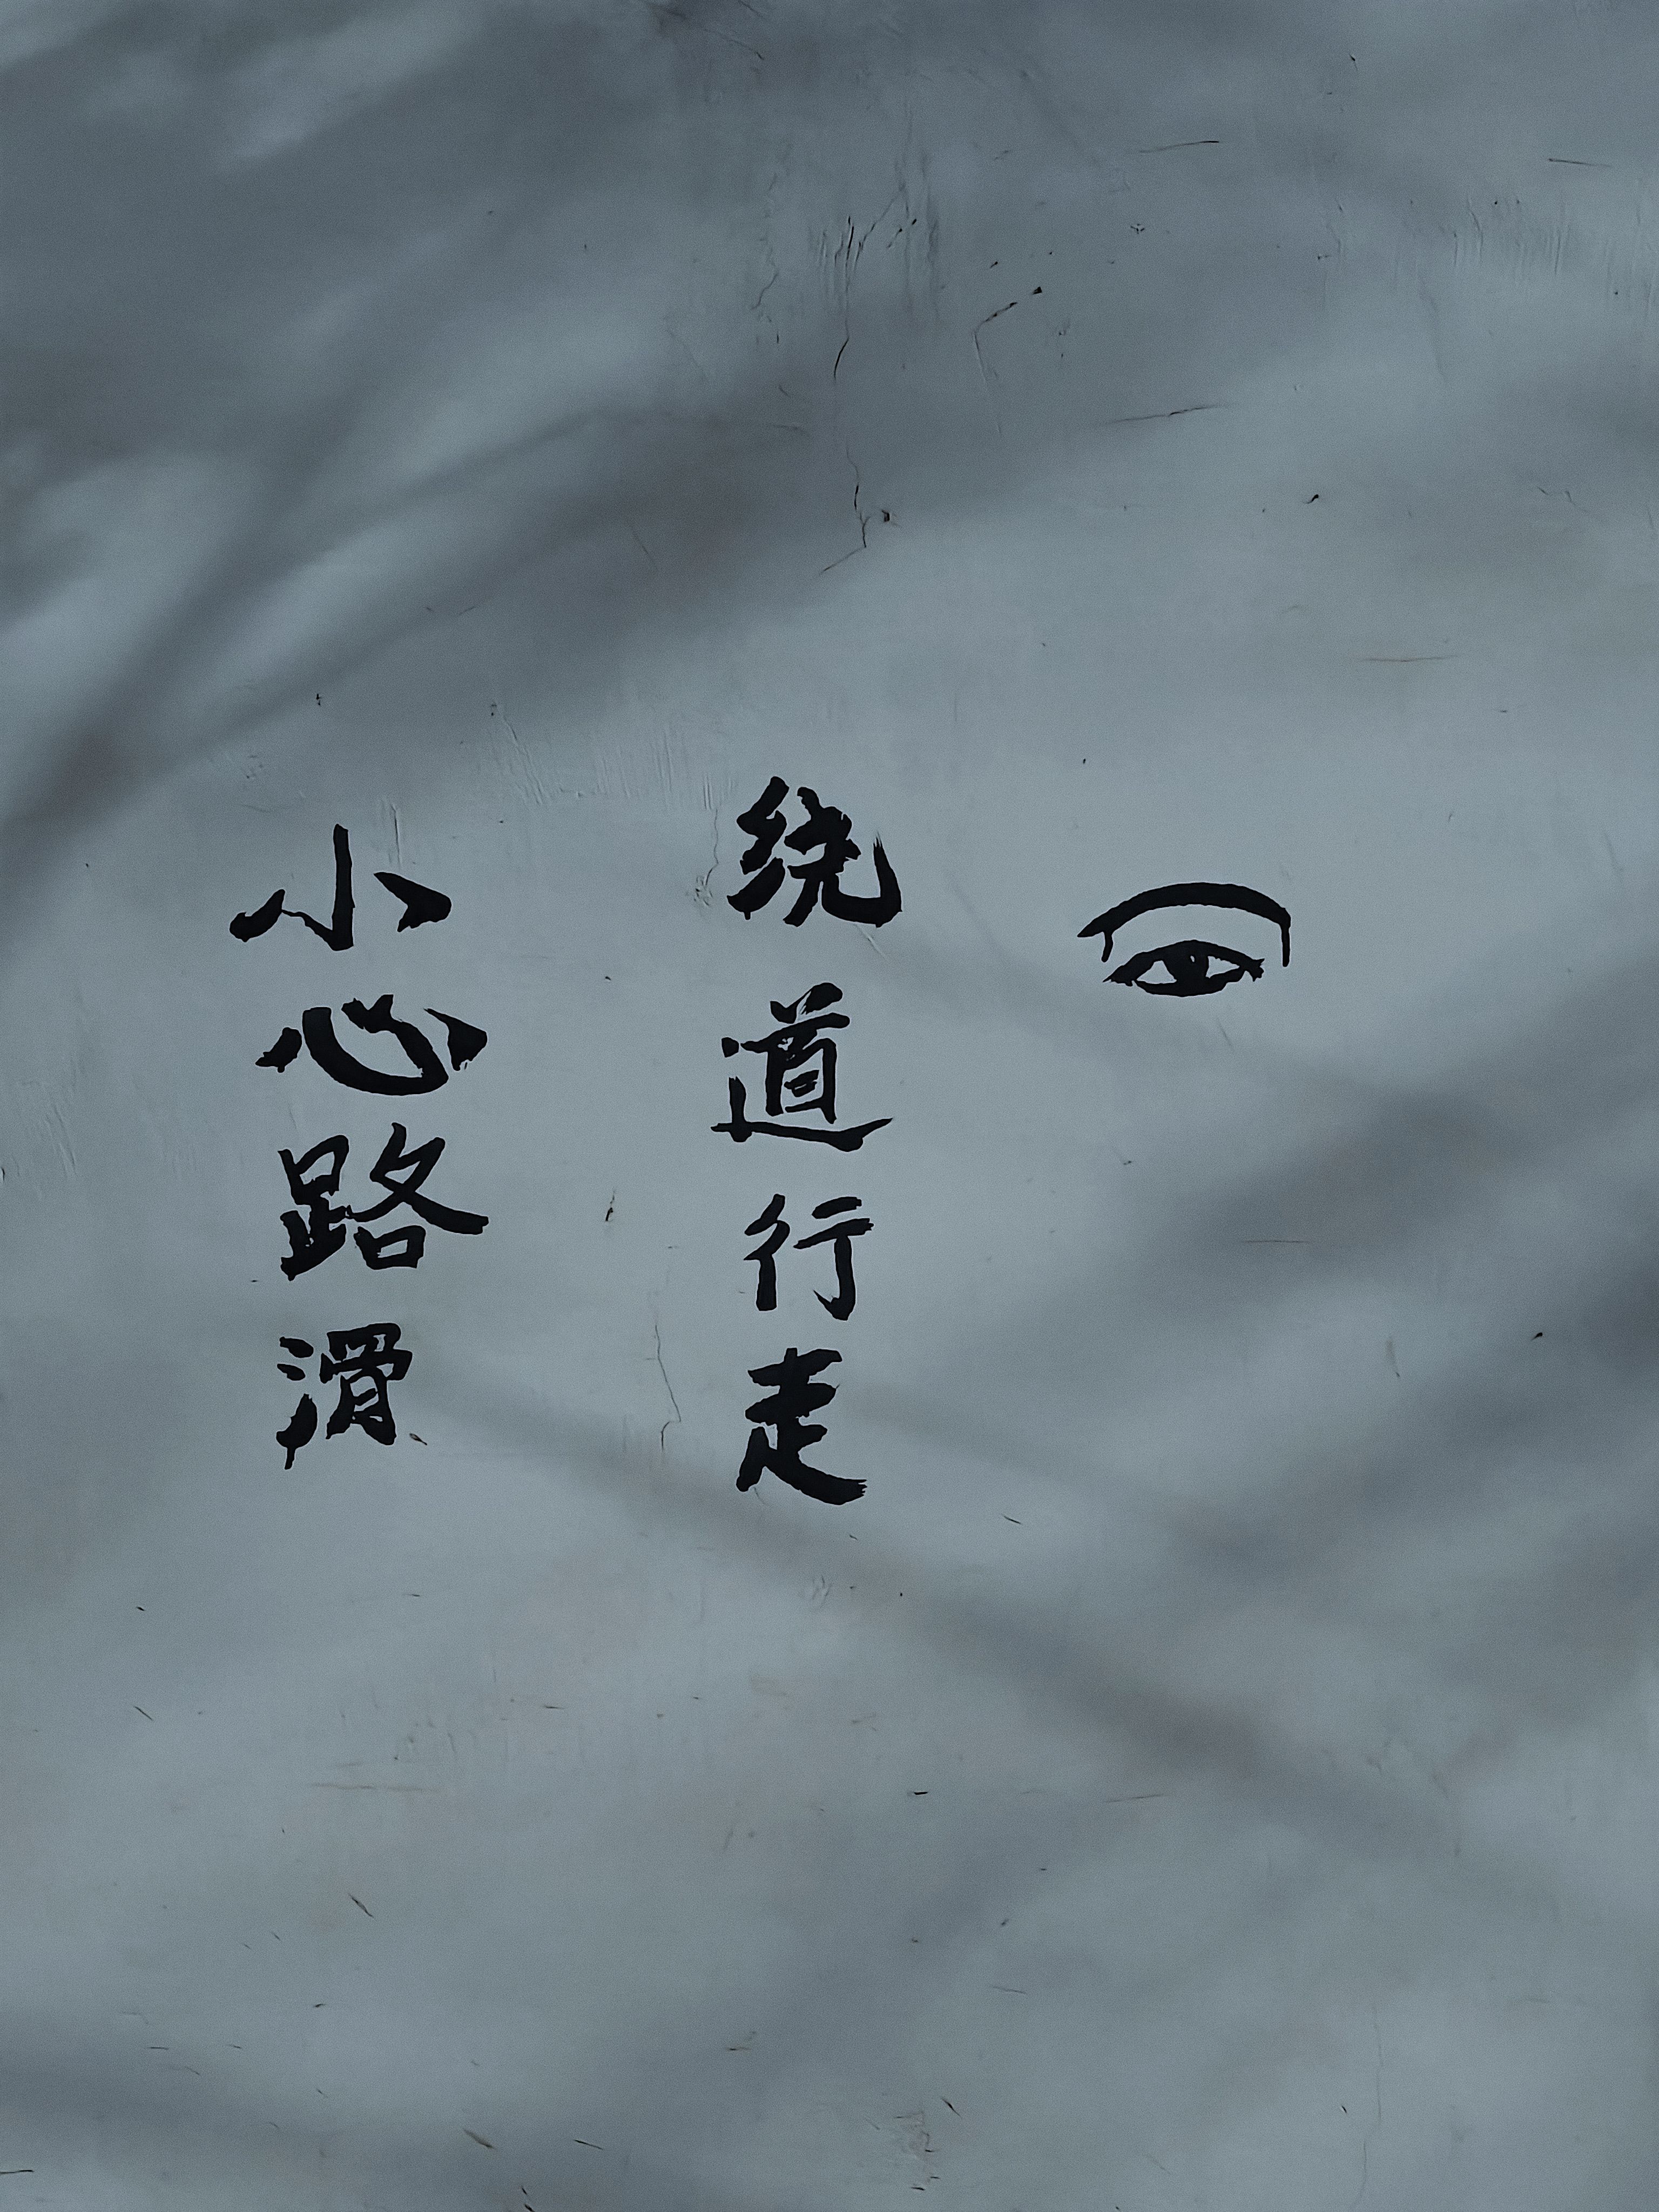 绕道行走
小心路滑